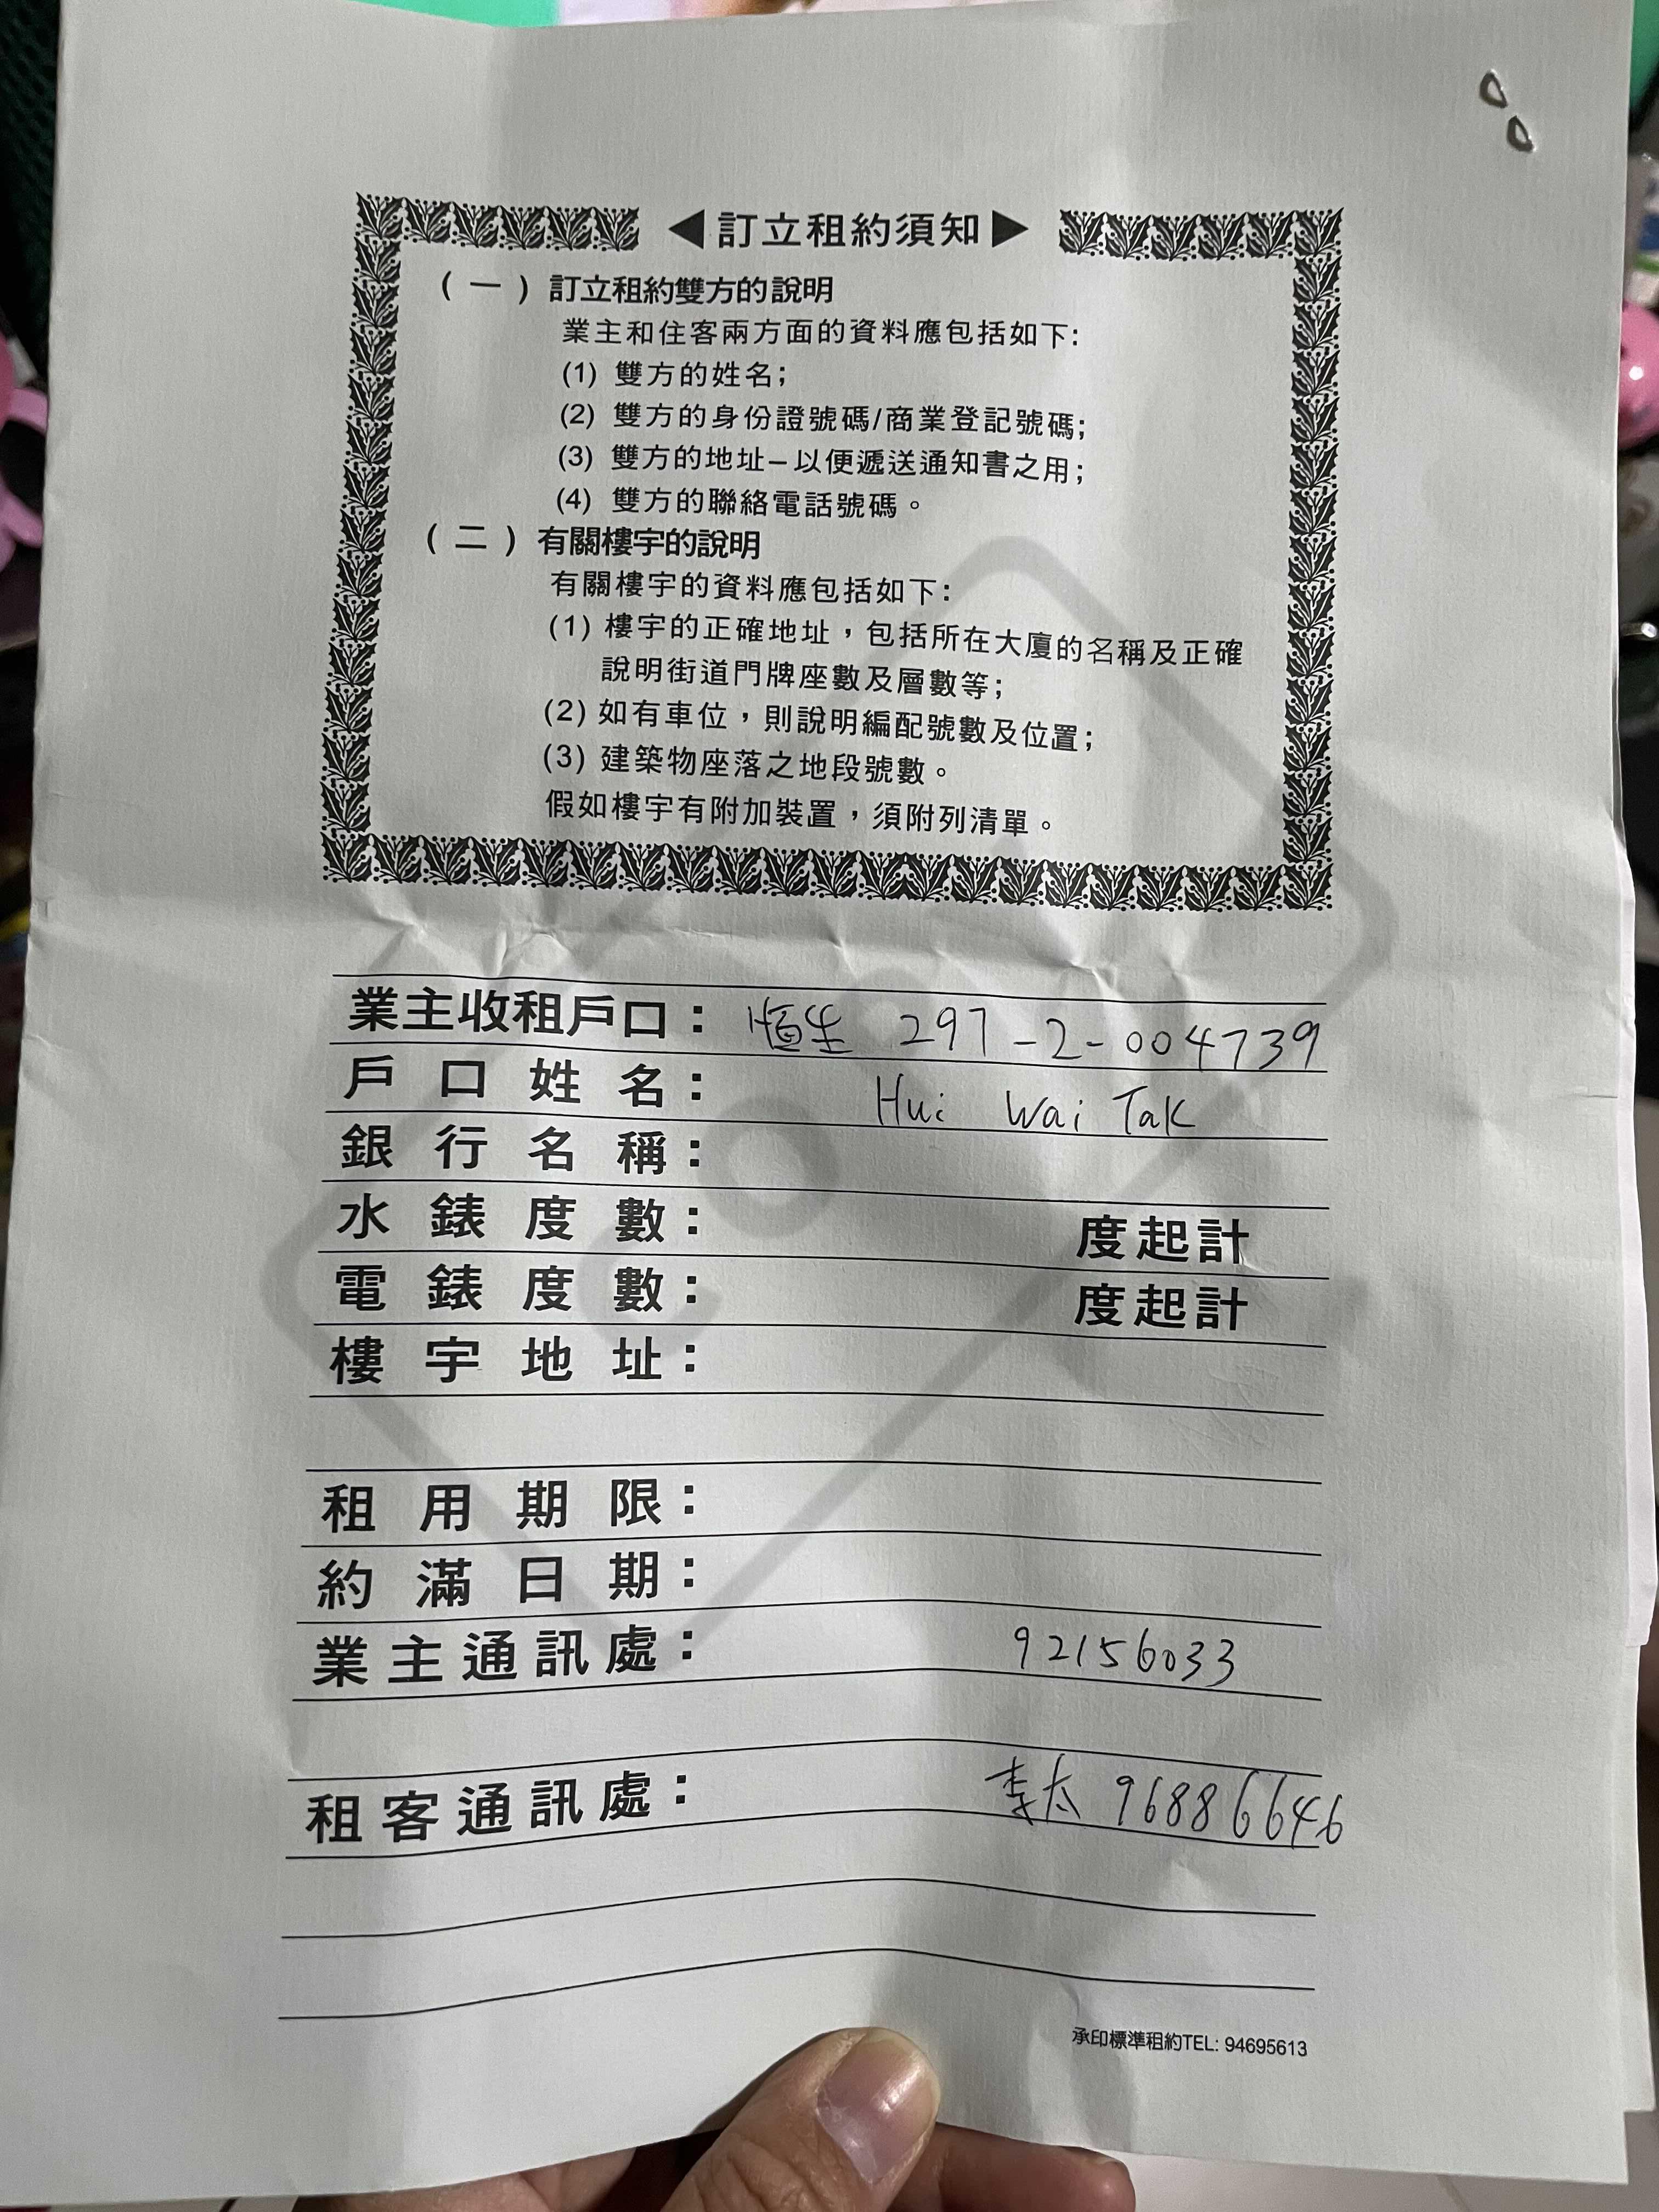 ◀訂立租約須知▶
(一) 訂立租約雙方的說明
業主和住客兩方面的資料應包括如下:
(1) 雙方的姓名;
(2) 雙方的身份證號碼/商業登記號碼;
(3) 雙方的地址–以便遞送通知書之用;
(4) 雙方的聯絡電話號碼。
(二) 有關樓宇的說明
有關樓宇的資料應包括如下:
(1) 樓宇的正確地址，包括所在大廈的名稱及正確
說明街道門牌座數及層數等;
(2) 如有車位，則說明編配號數及位置;
(3) 建築物座落之地段號數。
假如樓宇有附加裝置，須附列清單。
業主收租戶口： 恒生 297-2-004739
戶口姓名： Hui Wai Tak
銀行名稱：
水錶度數： 度起計
電錶度數： 度起計
樓宇地址：
租用期限：
約滿日期：
業主通訊處： 92156033
租客通訊處： 李太 96886646
承印標準租約TEL: 94695613